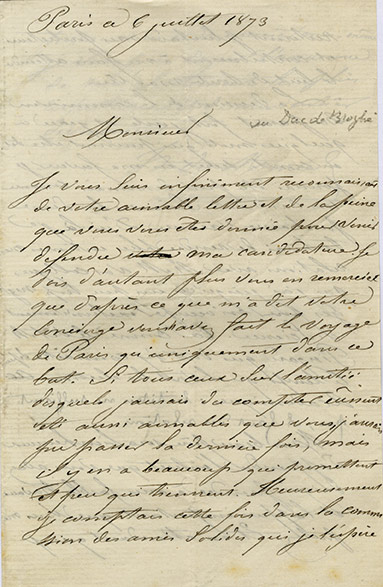 Paris ce 6 juillet 1873
au Duc de Broglie
Monsieur
Je vous suis infiniment reconnaissant
de votre aimable lettre et de la peine
que vous vous êtes donnée pour venir
défendre ma candidature. Je
dois d'autant plus vous en remercier
que d'après ce que m'a dit votre
concierge vous avez fait le voyage
de Paris qu'uniquement dans ce
but. Si tous ceux sur l'amitié
desquels j'aurais du compter eussent
été aussi aimables que vous j'aurais
pu passer la dernière fois, mais
il y en a beaucoup qui promettent
et peu qui tiennent. Heureusement
j'y comptais cette fois dans la commi
ssion des amis solides qui je l'espère